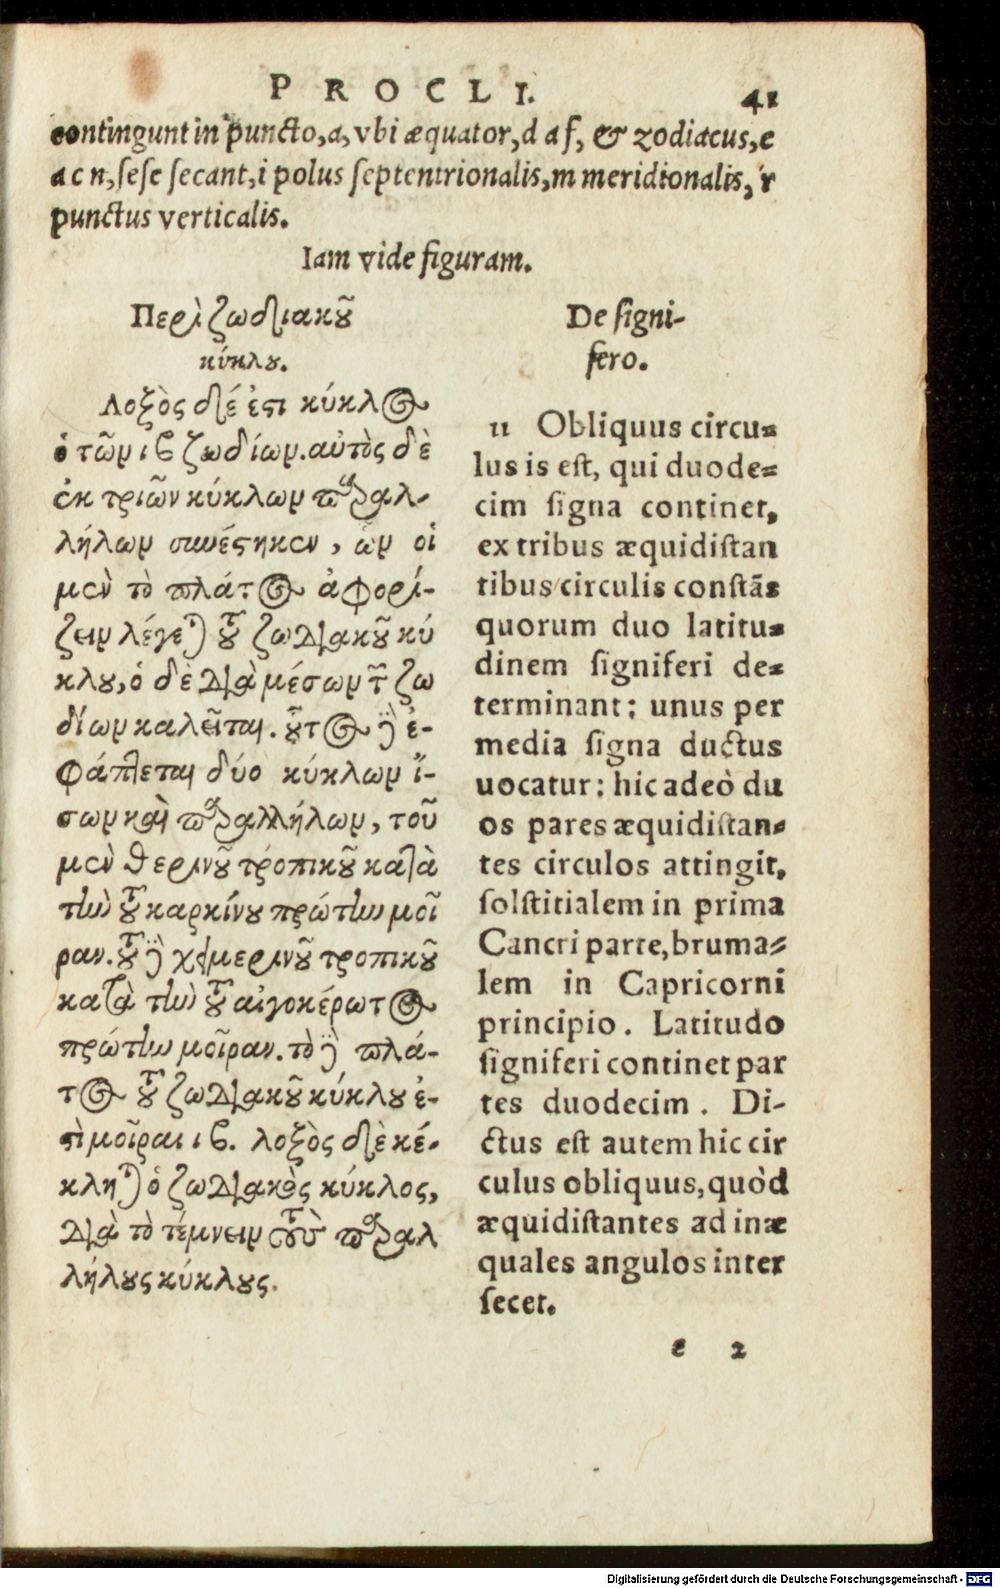 PROCLI. 41
contingunt in puncto, a, vbi æquator, d a f, & zodiacus, e
a c n, sese secant, i polus septentrionalis, m meridionalis, r
punctus verticalis.
Iam vide figuram.
Περὶ ζωδιακοῦ
κύκλου.
Λοξὸς δέ ἐστι κύκλος
ὁ τῶν ιβ ζωδίων. αὐτὸς δὲ
ἐκ τριῶν κύκλων παραλ-
λήλων συνέστηκεν, ὧν οἱ
μὲν τὸ πλάτος ἀφορί-
ζειν λέγεται τοῦ ζωδιακοῦ κύ
κλου, ὁ δὲ διὰ μέσων τῶν ζω
δίων καλεῖται. οὗτος δὲ ἐ-
φάπτεται δύο κύκλων ἴ-
σων καὶ παραλλήλων, τοῦ
μὲν θερινοῦ τροπικοῦ κατὰ
τὴν τοῦ καρκίνου πρώτην μοῖ
ραν. τοῦ δὲ χειμερινοῦ τροπικοῦ
κατὰ τὴν τοῦ αἰγοκέρωτος
πρώτην μοῖραν. τὸ δὲ πλά-
τος τοῦ ζωδιακοῦ κύκλου ἐ-
στὶ μοῖραι ιβ. λοξὸς δὲ κέ-
κληται ὁ ζωδιακὸς κύκλος,
διὰ τὸ τέμνειν τοὺς παραλ
λήλους κύκλους.
De signi-
fero.
11 Obliquus circu-
lus is est, qui duode-
cim signa continet,
ex tribus æquidistan
tibus circulis constãs
quorum duo latitu-
dinem signiferi de-
terminant: unus per
media signa ductus
uocatur: hic adeò du
os pares æquidistan-
tes circulos attingit,
solstitialem in prima
Cancri parte, bruma-
lem in Capricorni
principio. Latitudo
signiferi continet par
tes duodecim. Di-
ctus est autem hic cir
culus obliquus, quòd
æquidistantes ad inæ
quales angulos inter
secet.
e 2
Digitalisierung gefördert durch die Deutsche Forschungsgemeinschaft - DFG